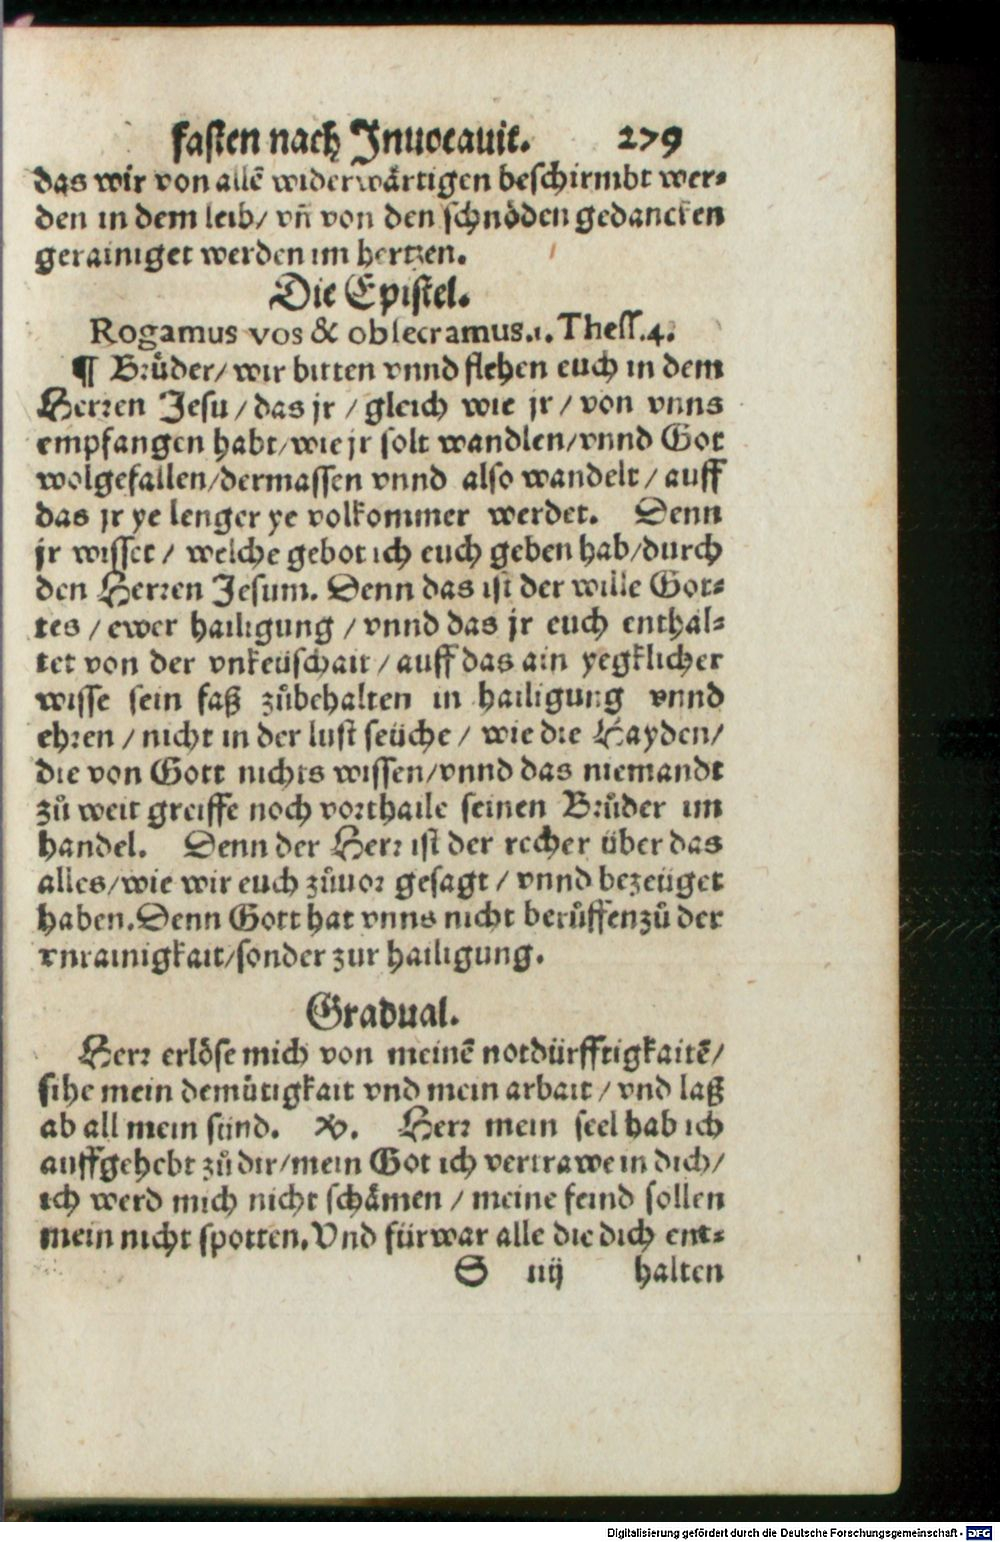 fasten nach Inuocauit. 279
das wir von allē widerwärtigen beschirmbt wer⸗
den in dem leib/ vñ von den schnöden gedancken
gerainiget werden im hertzen.
Die Epistel.
Rogamus vos & obsecramus.1. Thess.4.
¶ Brůder/ wir bitten vnnd flehen euch in dem
Herren Jesu / das jr / gleich wie jr / von vnns
empfangen habt/wie jr solt wandlen/vnnd Got
wolgefallen/dermassen vnnd also wandelt / auff
das jr ye lenger ye volkommer werdet. Denn
jr wisset / welche gebot ich euch geben hab/durch
den Herren Jesum. Denn das ist der wille Got⸗
tes / ewer hailigung / vnnd das jr euch enthal⸗
tet von der vnkeüschait / auff das ain yegklicher
wisse sein faß zůbehalten in hailigung vnnd
ehren / nicht in der lust seüche / wie die Hayden/
die von Gott nichts wissen/vnnd das niemandt
zů weit greiffe noch vorthaile seinen Brůder im
handel. Denn der Herr ist der recher über das
alles/wie wir euch zůuor gesagt / vnnd bezeüget
haben. Denn Gott hat vnns nicht berůffen zů der
vnrainigkait/sonder zur hailigung.
Gradual.
Herr erlöse mich von meinē notdürfftigkaitē/
sihe mein demütigkait vnd mein arbait / vnd laß
ab all mein sünd. ℣. Herr mein seel hab ich
auffgehebt zů dir/mein Got ich vertrawe in dich/
ich werd mich nicht schämen / meine feind sollen
mein nicht spotten. Vnd fürwar alle die dich ent⸗
S iiij halten
Digitalisierung gefördert durch die Deutsche Forschungsgemeinschaft - DFG